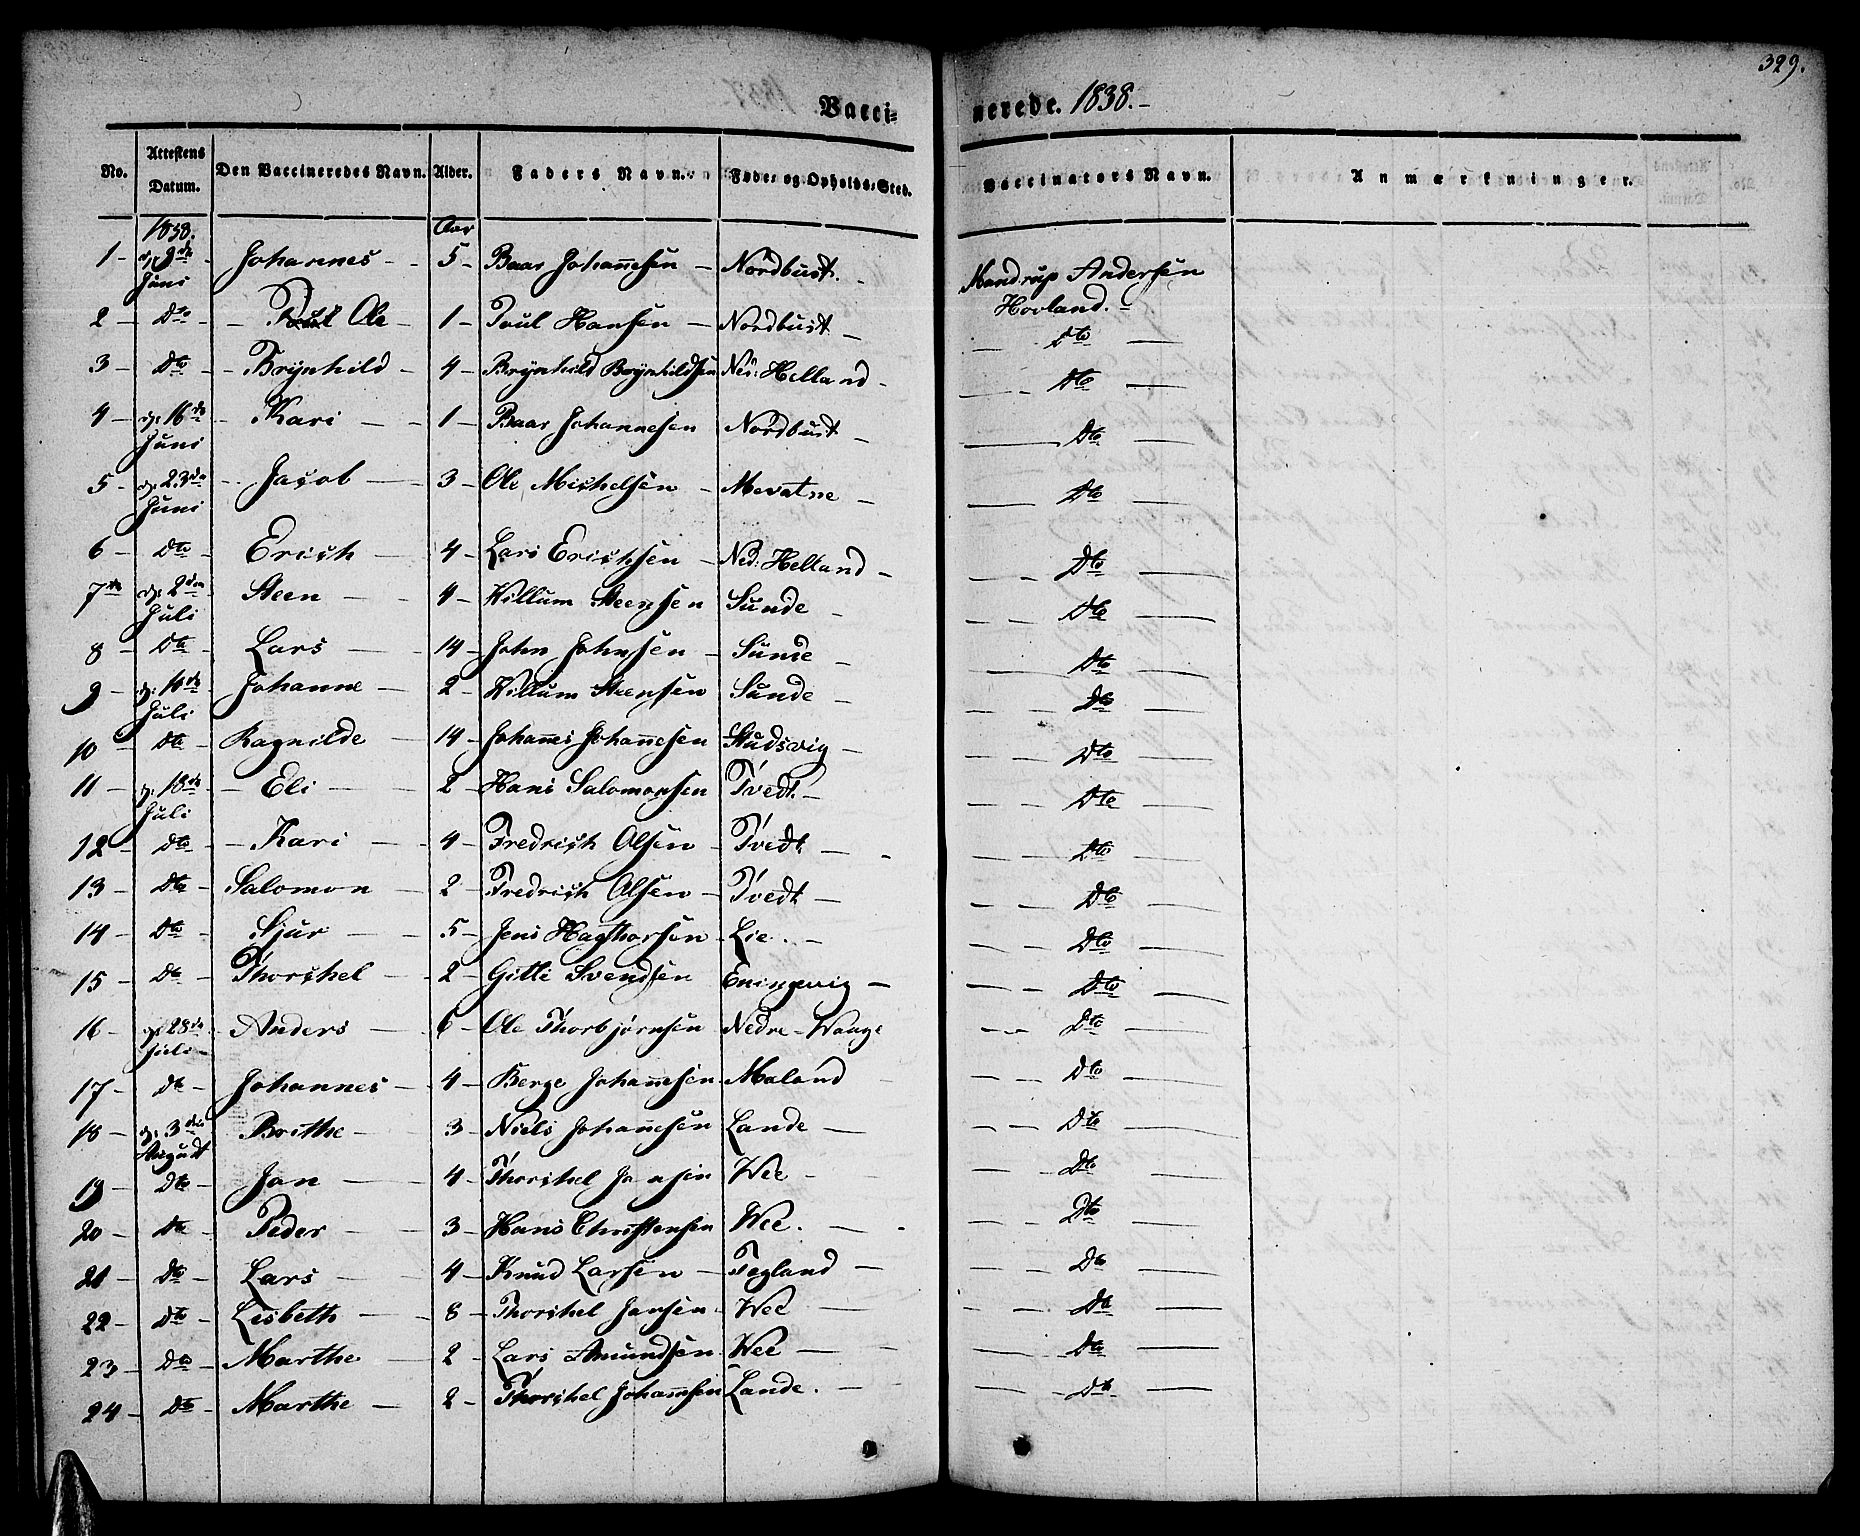 329.
Vacci- nerede. 1838.-
No. Attestens Datum. Den Vaccineredes Navn. Alder. Faders Navn. Føde- og Opholds-Sted. Vaccinators Navn. Anmærkninger.
1838. Aar
1 - d. 9de Juni - Johannes - 5 - Baar Johannesen - Nordhust. - Mandrup Andersen Hovland. -
2 - Dto - Ole - 1 - Poul Hansen - Nordhust - Dto
3 - Dto - Brynhild - 4 - Brynhild Brynhildsen Ned: Helland - Dto
4 - d. 16de Juni - Kari - 1 - Baar Johannesen - Nordhust - Dto
5 - d. 23de Juni - Jacob - 3 - Ole Michelsen - Mevatne - Dto
6 - Dto - Erich - 4 - Lars Erichsen - Ned: Helland - Dto
7de d. 2den Juli Steen - 4 - Villum Steensen Sunde - Dto
8 - Dto - Lars - 14 - John Johnsen - Sunde - Dto
9 - d. 10de Juli Johanne - 2 - Villum Steensen Sunde - Dto
10 - Dto - Ragnilde - 14 - Johannes Johannesen Studsvig - Dto
11 - d. 18de Juli - Eli - 2 - Hans Salomonsen Tvedt. - Dto
12 - Dto - Kari - 4 - Fredrich Olsen - Tvedt - Dto
13 - Dto Salomon - 2 - Fredrich Olsen - Tvedt - Dto
14 - Dto - Sjur - 5 - Jens Hagthorsen Lie. - Dto
15 - Dto Thorchel - 2 - Gitle Svendsen Eningevig - Dto
16 - d. 28de Juli - Anders - 6 - Ole Thorbjørnsen Nedre-Waage - Dto
17 - Dto - Johannes - 4 - Berge Johannesen Maland - Dto
18 - d. 3die August Brithe - 3 - Niels Johannesen Lande - Dto
19 - Dto - Jan - 4 - Thorchel Jansen Wee - Dto
20 - Dto - Peder - 3 - Hans Christensen Wee. - Dto
21 - Dto - Lars - 4 - Knud Larsen - Tegland - Dto
22 - Dto - Lisbeth - 8 - Thorchel Jansen - Wee - Dto
23 - Dto - Marthe - 2 - Lars Amundsen Wee - Dto
24 - Dto - Marthe - 2 - Thorchel Johannesen Lande. - Dto